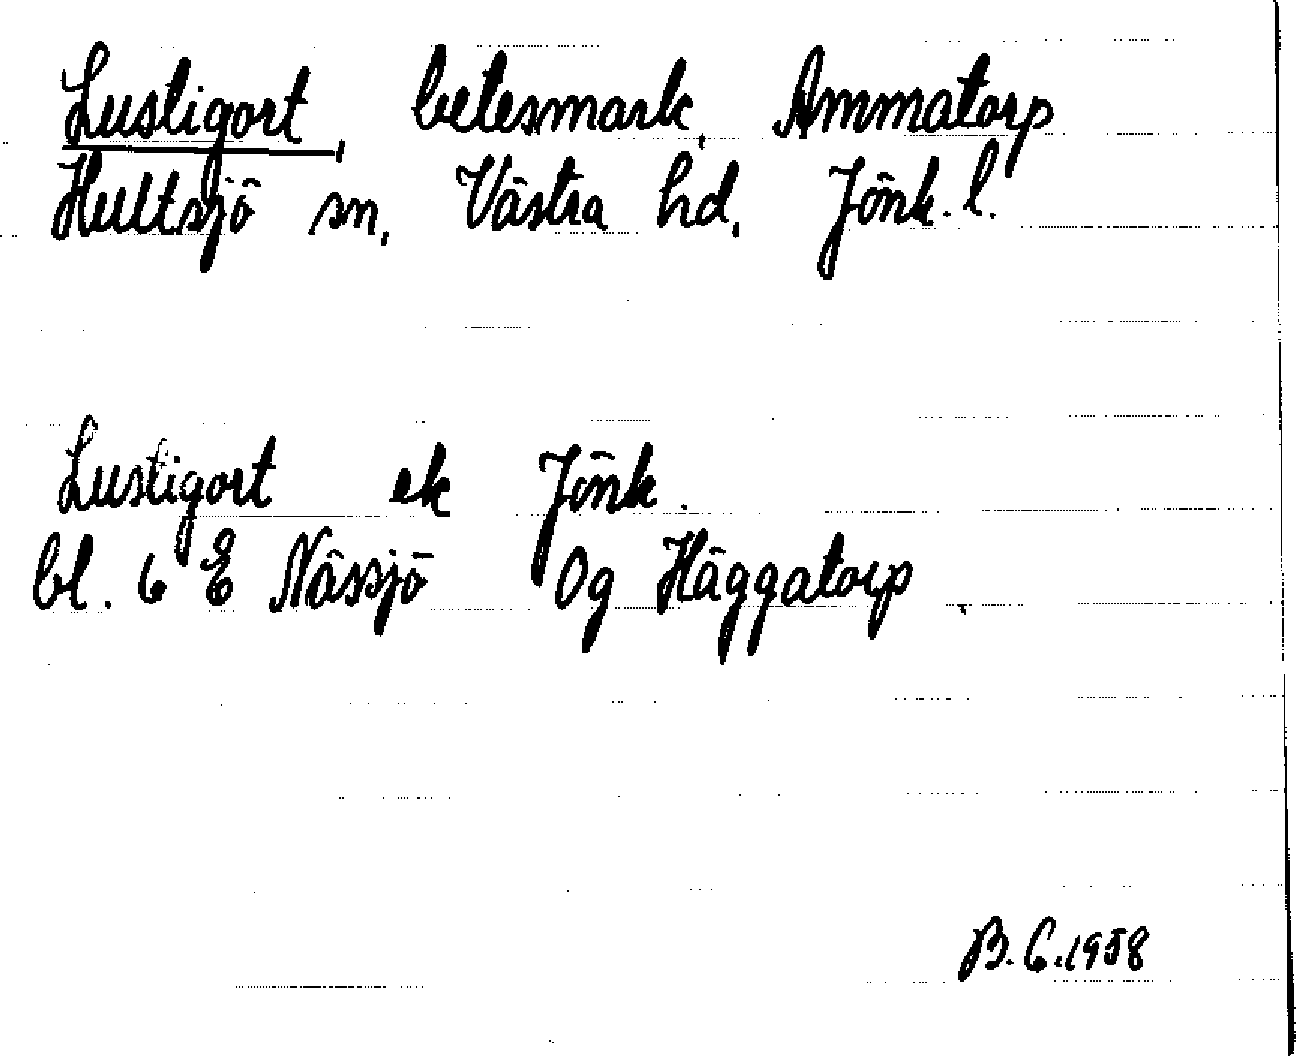 Lustigort, betesmark, Ammatorp
Hultsjö sn, Västra hd, Jönk. l.
Lustigort ek Jönk.
bl. 6 E Nässjö Og Häggatorp
B.C.1958